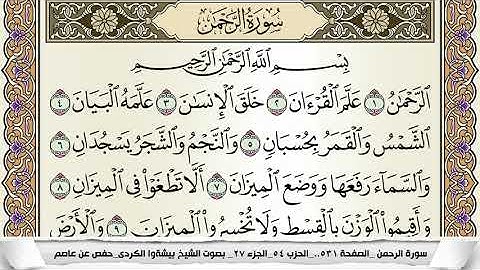 سُورَةُ الرَّحْمَٰن
بِسْمِ اللَّهِ الرَّحْمَٰنِ الرَّحِيمِ
الرَّحْمَٰنُ ١ عَلَّمَ الْقُرْءَانَ ٢ خَلَقَ الْإِنسَانَ ٣ عَلَّمَهُ الْبَيَانَ ٤
الشَّمْسُ وَالْقَمَرُ بِحُسْبَانٍ ٥ وَالنَّجْمُ وَالشَّجَرُ يَسْجُدَانِ ٦
وَالسَّمَاءَ رَفَعَهَا وَوَضَعَ الْمِيزَانَ ٧ أَلَّا تَطْغَوْا فِي الْمِيزَانِ ٨
وَأَقِيمُوا الْوَزْنَ بِالْقِسْطِ وَلَا تُخْسِرُوا الْمِيزَانَ ٩ وَالْأَرْضَ
سورة الرحمن _الصفحة ٥٣١.._الحزب ٥٤_الجزء ٢٧_ بصوت الشيخ بيشةوا الكردى_حفص عن عاصم